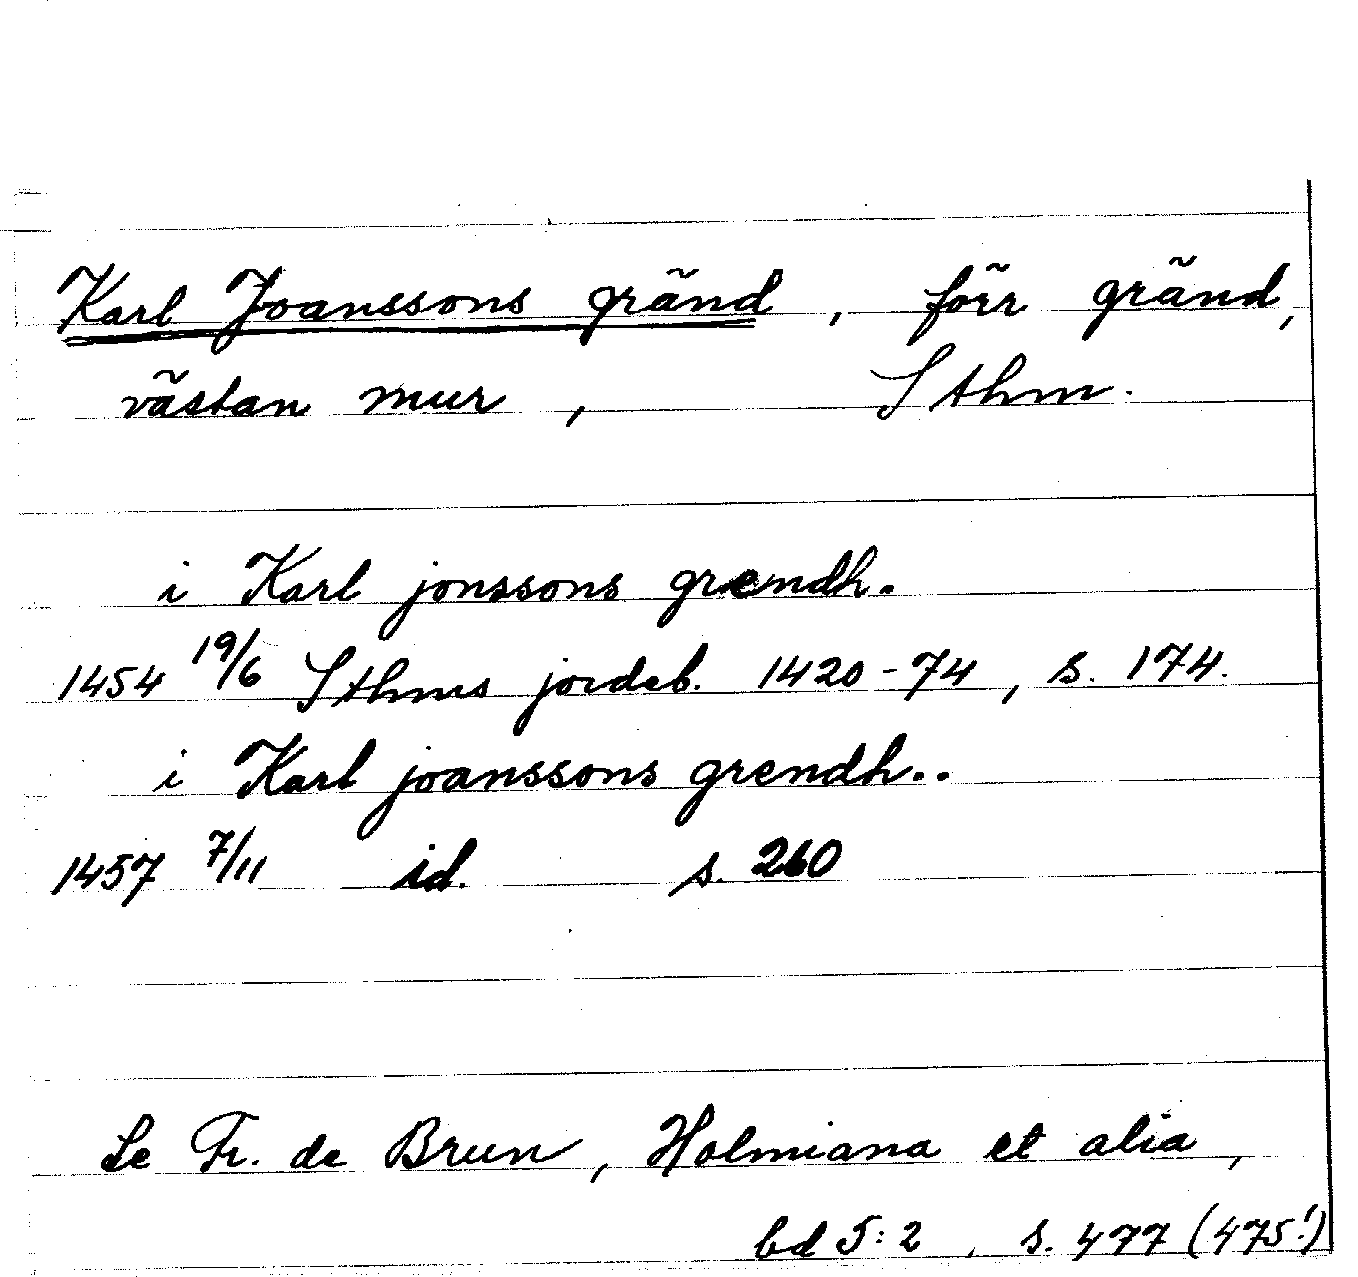 Karl Joanssons gränd, förr gränd,
västan mur, Sthm.
i Karl jonssons grendh.
1454 19/6 Sthms jordeb. 1420-74, s. 174.
i Karl joanssons grendh..
1457 7/11 id. s. 260
Se Fr. de Brun, Holmiana et alia,
bd 5:2, s. 477 (475!)